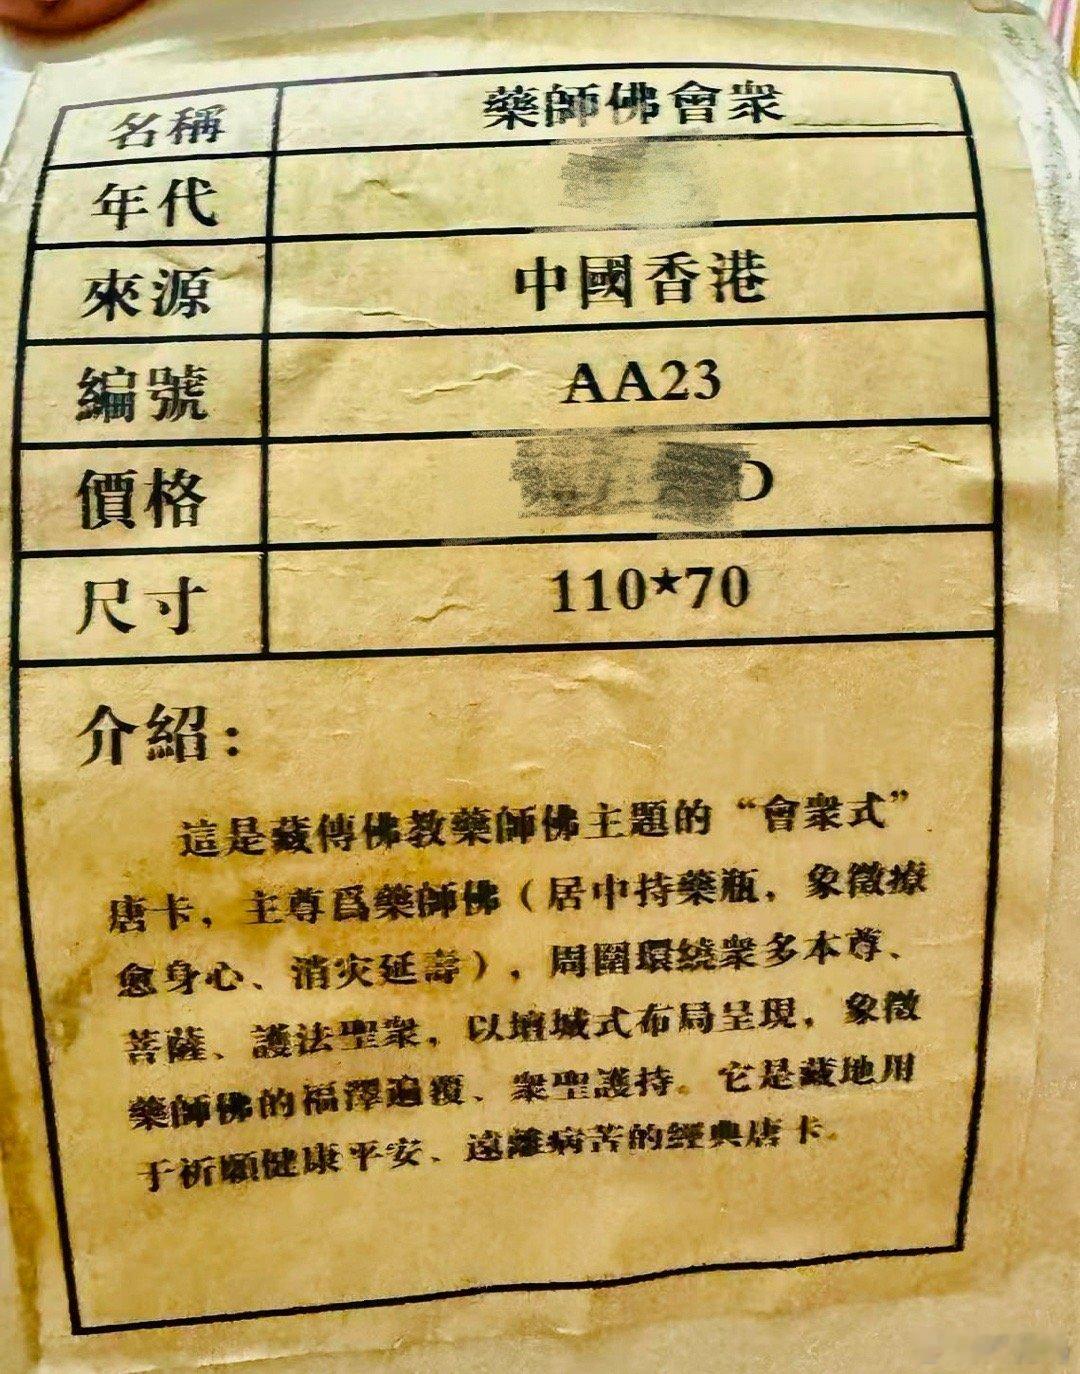 名稱 藥師佛會衆
年代
來源 中國香港
編號 AA23
價格
尺寸 110★70
介紹：
這是藏傳佛教藥師佛主題的“會衆式”
唐卡，主尊爲藥師佛（居中持藥瓶，象徵療
愈身心、消灾延壽），周圍環繞衆多本尊、
菩薩、護法聖衆，以壇城式布局呈現，象徵
藥師佛的福澤遍覆、衆聖護持。它是藏地用
于祈願健康平安、遠離病苦的經典唐卡。